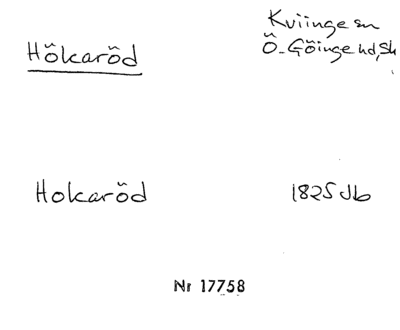 Hökaröd
Kviinge sn
Ö. Göinge hd, Sk
Hokaröd
1825 Jb
Nr 17758